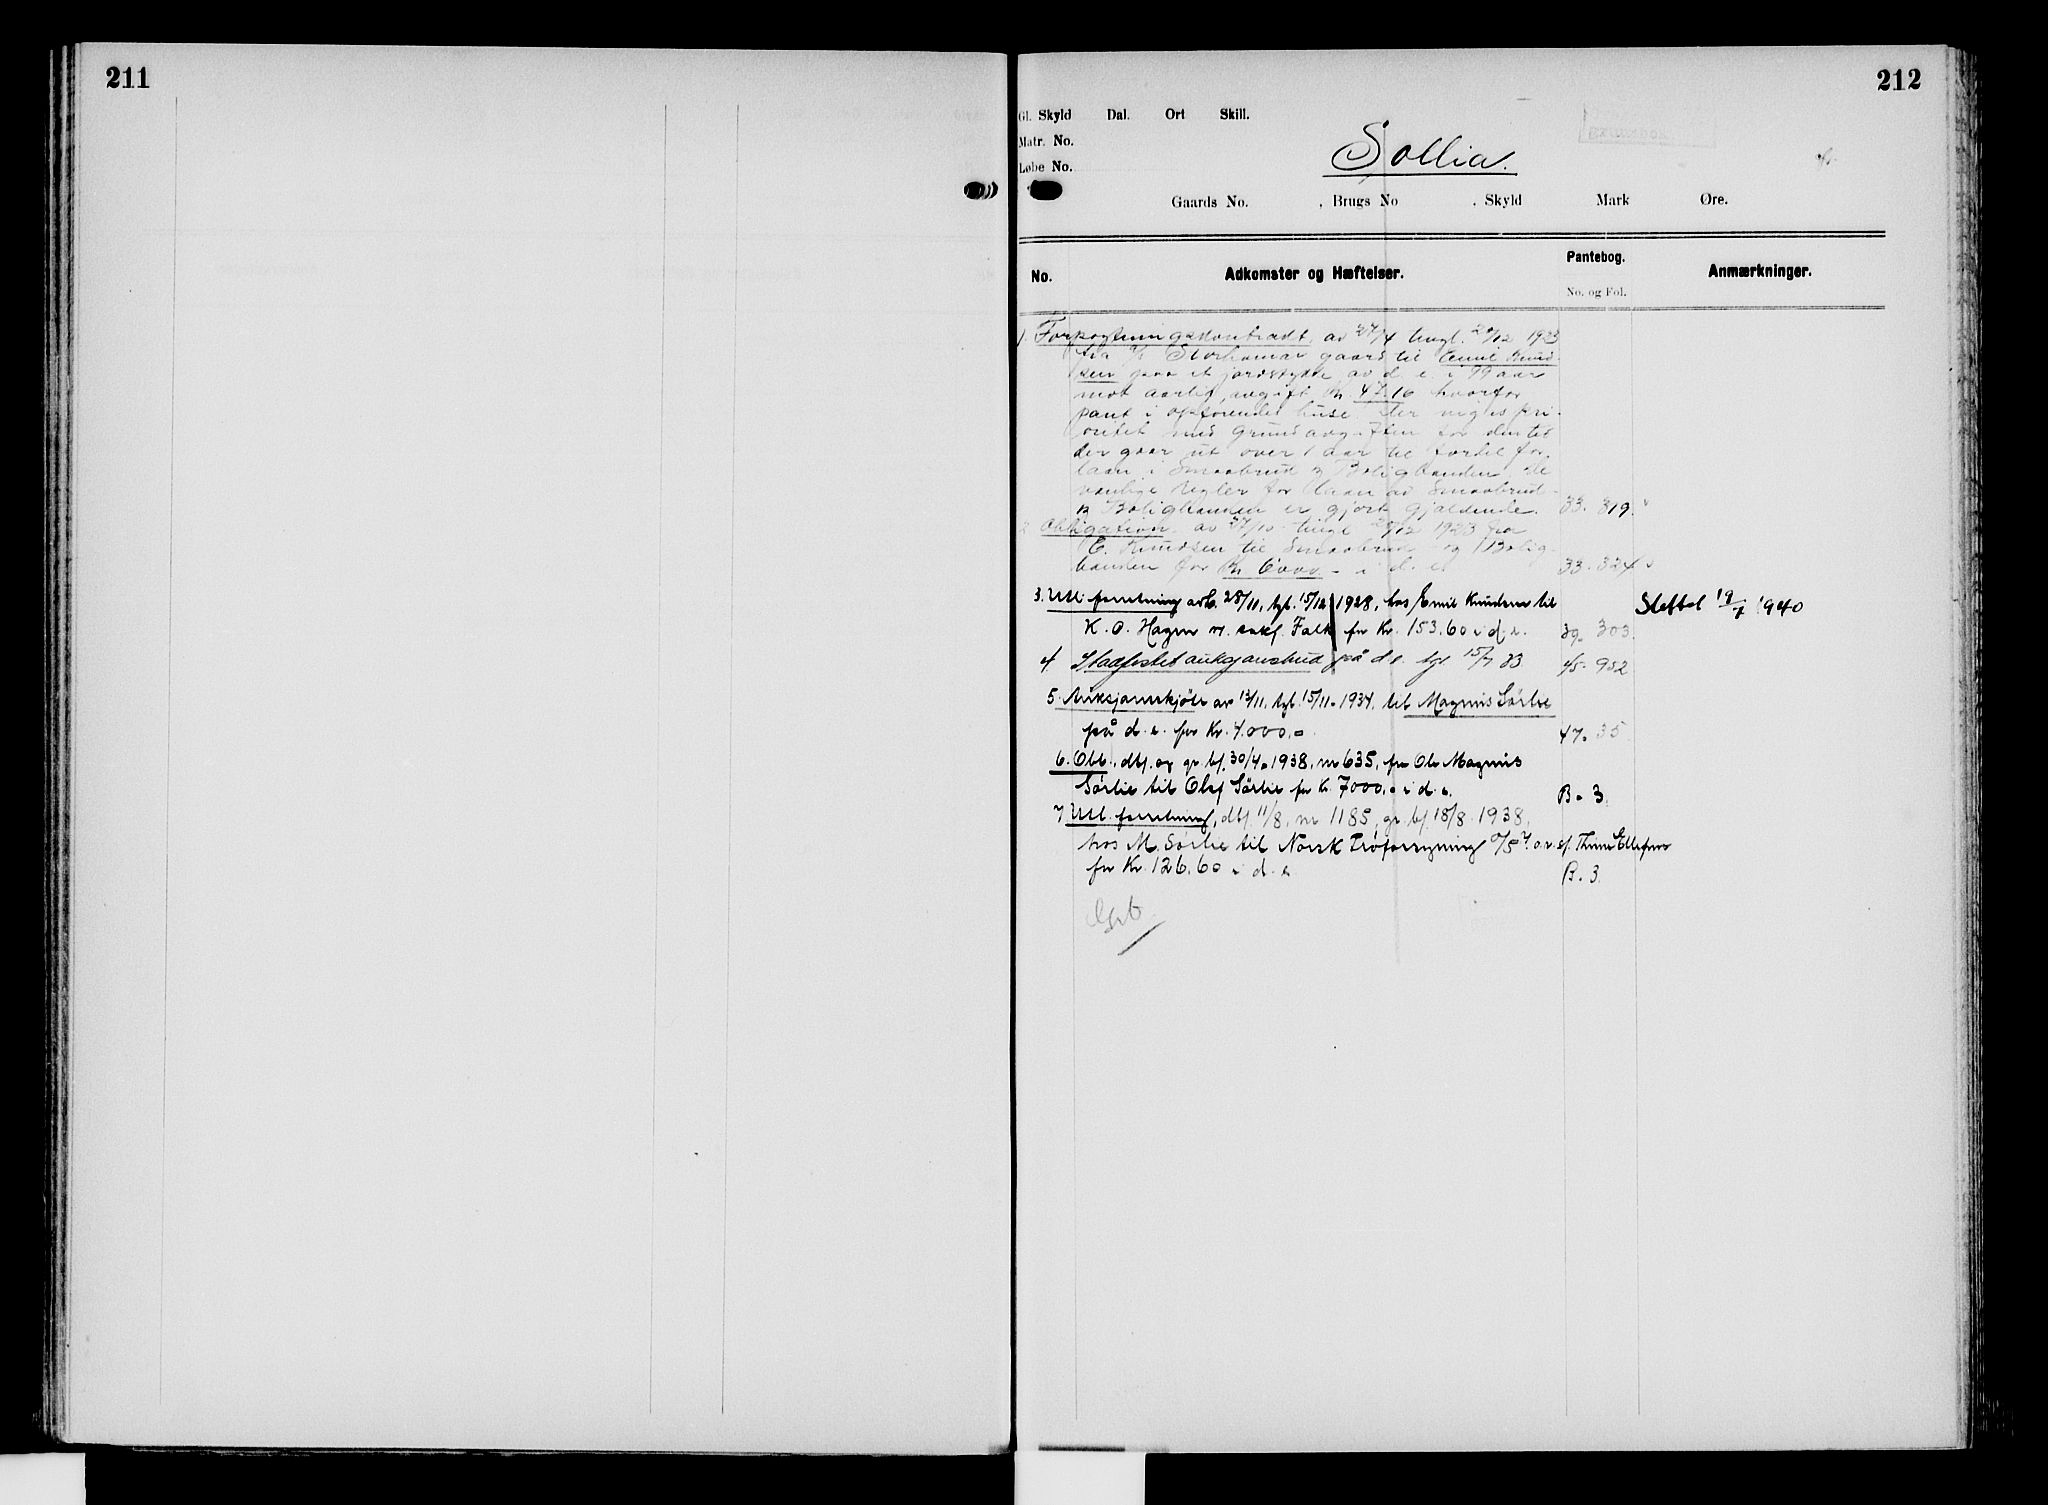 211
212
Gl. Skyld Dal. Ort Skill.
Matr. No.
Løbe No.
Sollia.
Gaards No. , Brugs No . Skyld Mark Øre.
No. Adkomster og Hæftelser. Pantebog. No. og Fol. Anmærkninger.
1. Forpagtningskontrakt av 27/4 tingl. 20/12 1923
fra Storhamar gaard til Emil Knud-
sen paa et jordstykke av d. e. i 99 aar
mot aarlig avgift Kr 47.16 hvorfor
pant i opførendes huse. Der vig's pri-
oritet med grundavgiften for den tid
der gaar ut over 1 aar til fordel for
laan i Smaabruk & Boligbanken. De
vanlige regler for laan av Smaabruk-
& Boligbanken er gjort gjældende. 33. 319.
2 Obligation av 27/10 tingl 20/12 1923 fra
E. Knudsen til Smaabruk og Bolig-
banken for Kr 6000.- i d. e. 33. 324
3. Utl. forretning avh. 28/11, tgl. 15/12 1928, hos Emil Knudsen til
K. O. Hagen v. sakf. Falk for Kr. 153.60 i d. e. 39. 303.
Slettet 19/7 1940
4 Stadfestet auksjonsbud på d e. tgl 15/7 33 45. 952
5. Auksjonsskjøte av 13/11, tgl. 15/11. 1934. til Magnus Sørlie
på d. e. for Kr. 4.000.- 47. 35
6. Obl., dbf. og gr. bf. 30/4. 1938, nr 635, fra Ole Magnus
Sørlie til Olaf Sørlie for Kr. 7000.- i d. e. B. 3.
7 Utl. forretning, dbf. 11/8, nr 1185, gr. bf. 18/8 1938,
hos M. Sørlie til Norsk Frøforsyning v. o.r.sf. Thime Ellefsen
for Kr. 126.60 i d. e. B. 3.